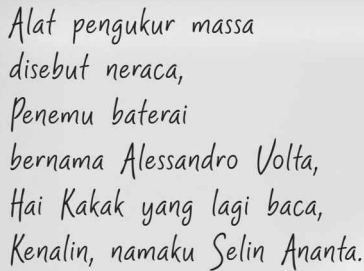 Alat pengukur massa
disebut neraca,
Penemu baterai
bernama Alessandro Volta,
Hai Kakak yang lagi baca,
Kenalin, namaku Selin Ananta.